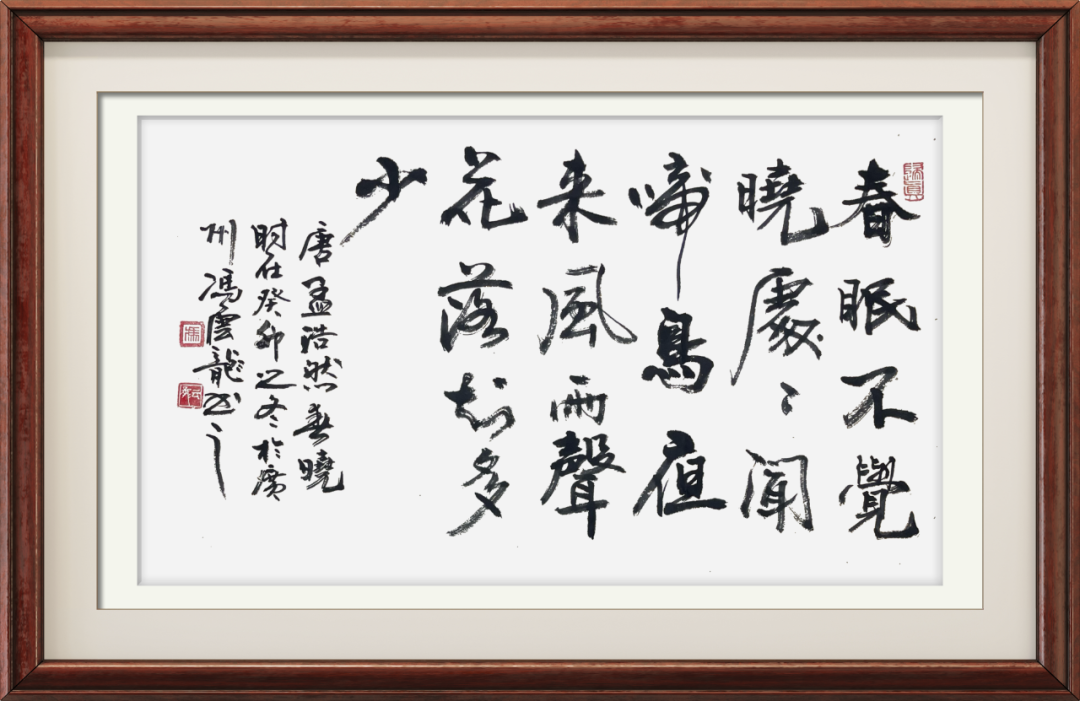 春眠不覺
曉處〻聞
啼鳥夜
来風雨聲
花落知多
少
唐孟浩然春曉
时在癸卯之冬於廣
州馮雲龍书